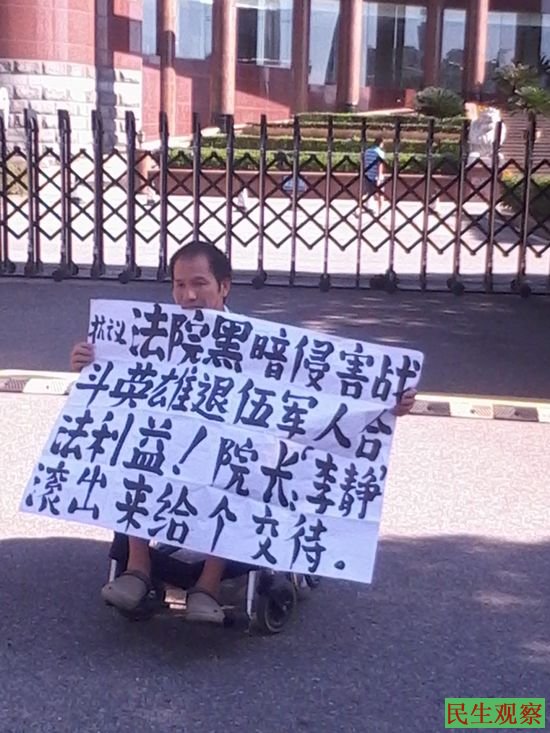 抗议法院黑暗侵害战
斗英雄退伍军人合
法利益！院长“李静”
滚出来给个交待.
民生观察